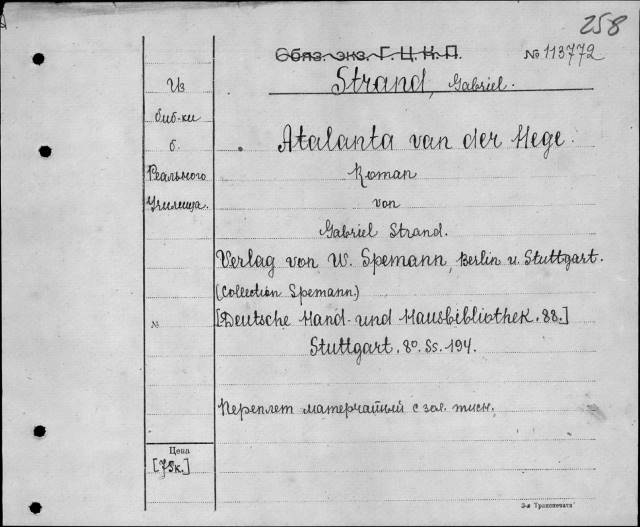 258
Обяз. экз. Г. Ц. К. П.
№ 113772
Strand, Gabriel.
Из
биб-ки
б.
Реального
Училища.
Atalanta van der Hege.
Roman
von
Gabriel Strand.
Verlag von W. Spemann, Berlin u. Stuttgart.
(Collection Spemann.)
[Deutsche Hand- und Hausbibliothek. 88.]
№
Stuttgart. 8°. Ss. 194.
Переплет матерчатый с зол. тисн.
Цена
[75к.]
3-я Транспечати